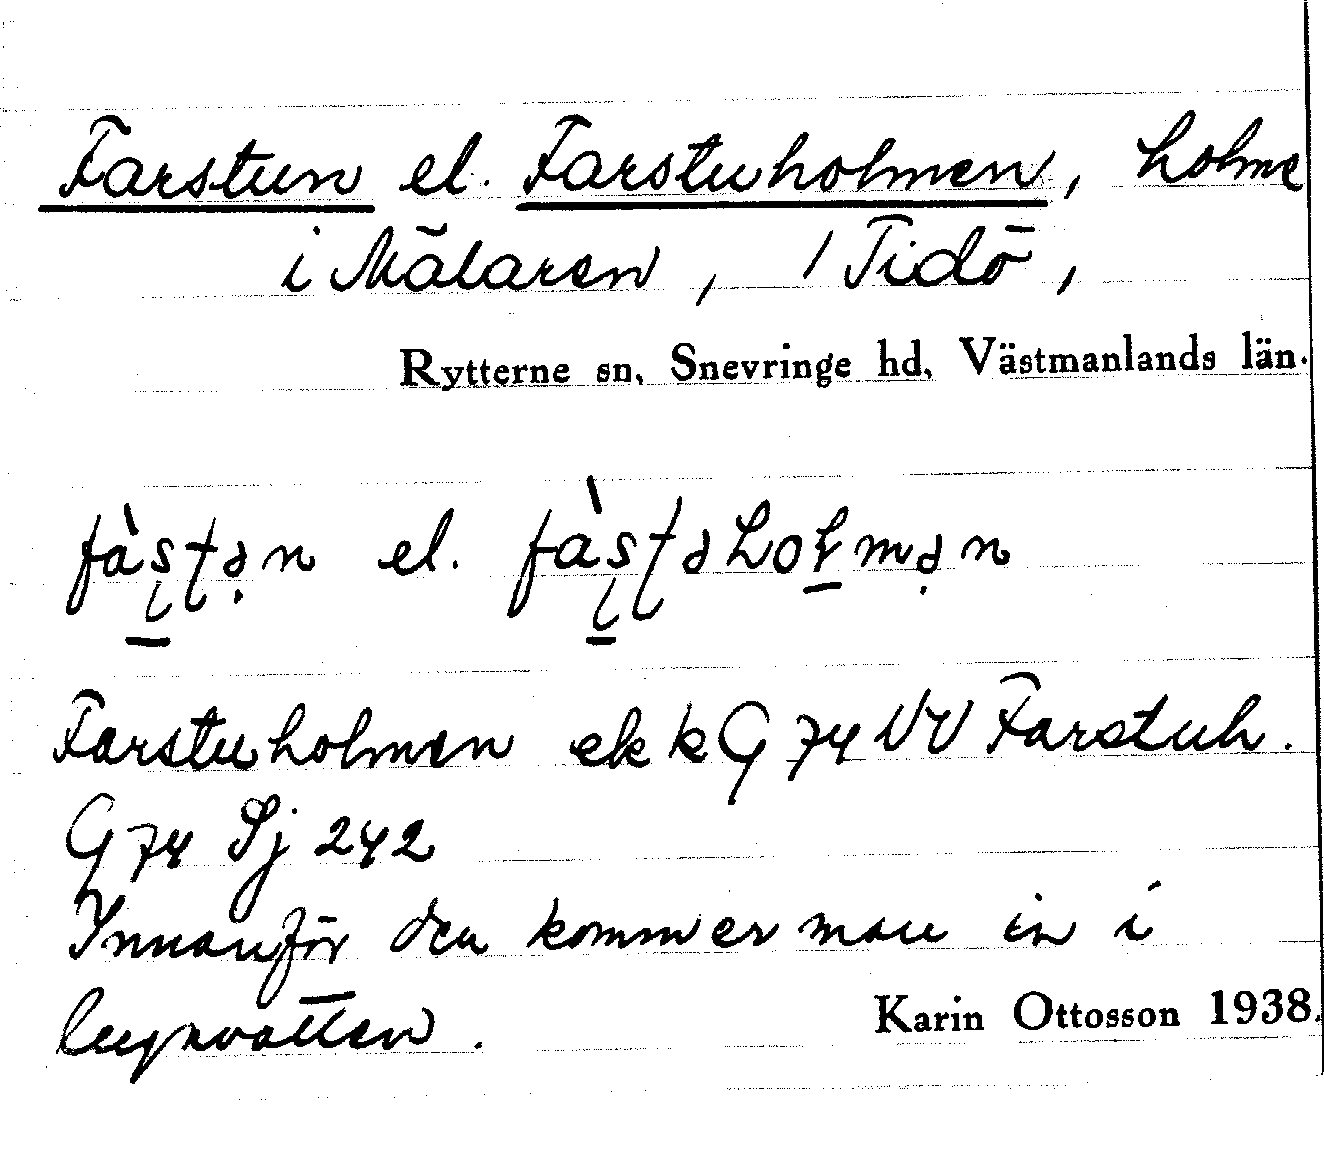 Farstun el. Farstuholmen, holme
i Mälaren, / Tidö,
Rytterne sn, Snevringe hd, Västmanlands län.
el.
Farstuholmen ek k G 74 VV Farstuh.
G 74 Sj 242
Innanför den kommer man in i
lugnvatten.
Karin Ottosson 1938.